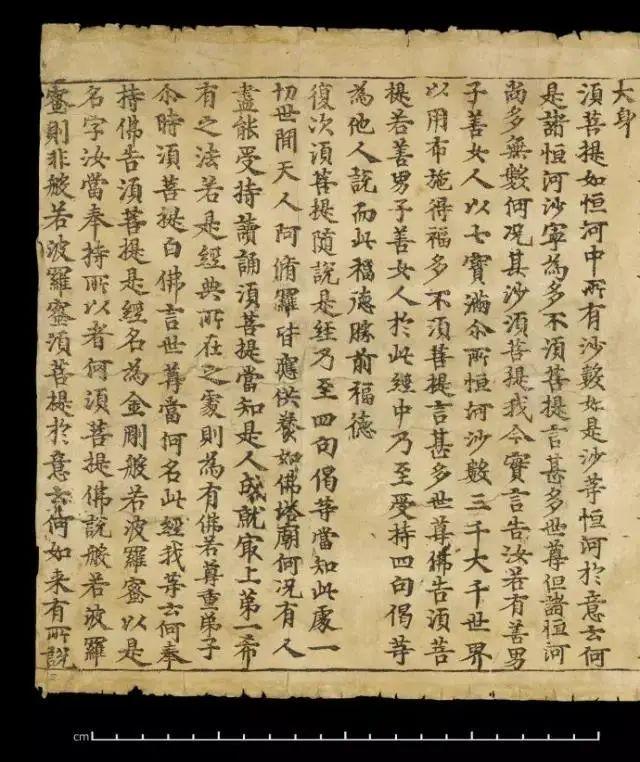 大身
須菩提如恒河中所有沙數如是沙等恒河於意云何
是諸恒河沙寧為多不須菩提言甚多世尊但諸恒河
尚多無數何況其沙須菩提我今實言告汝若有善男
子善女人以七寶滿尒所恒河沙數三千大千世界
以用布施得福多不須菩提言甚多世尊佛告須菩
提若善男子善女人於此經中乃至受持四句偈等
為他人說而此福德勝前福德
復次須菩提隨說是経乃至四句偈等當知此處一
切世間天人阿脩羅皆應供養如佛塔廟何況有人
盡能受持讀誦須菩提當知是人成就冣上第一希
有之法若是經典所在之處則為有佛若尊重弟子
尒時須菩提白佛言世尊當何名此經我等云何奉
持佛告須菩提是經名為金剛般若波羅蜜以是
名字汝當奉持所以者何須菩提佛說般若波羅
蜜則非般若波羅蜜須菩提於意云何如来有所說
cm